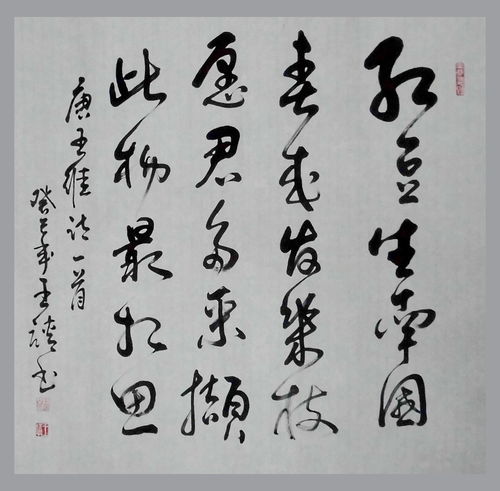 红豆生南國
春来发幾枝
愿君多采撷
此物最相思
唐王维诗一首
癸巳年王书